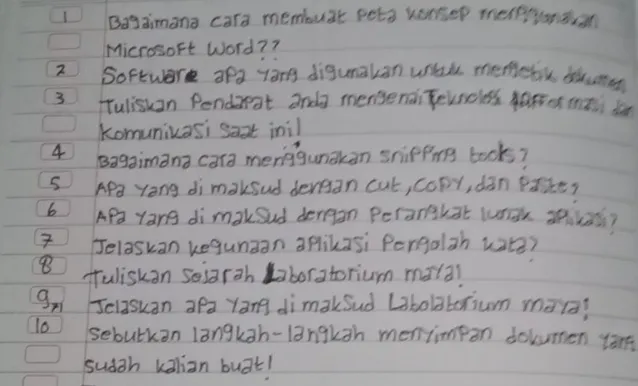 1 Bagaimana cara membuat peta konsep menggunakan
Microsoft Word??
2 Software apa yang digunakan untuk mengetik dokumen
3 Tuliskan Pendapat anda mengenai Teknologi informasi dan
Komunikasi saat ini!
4 Bagaimana cara menggunakan snipping tools?
5 Apa yang di maksud dengan cut, copy, dan paste?
6 Apa yang di maksud dengan Perangkat lunak aplikasi?
7 Jelaskan kegunaan aplikasi Pengolah kata?
8 Tuliskan Sejarah Laboratorium maya!
9 Jelaskan apa yang di maksud Labolatorium maya!
10 Sebutkan langkah-langkah menyimpan dokumen yang
sudah kalian buat!